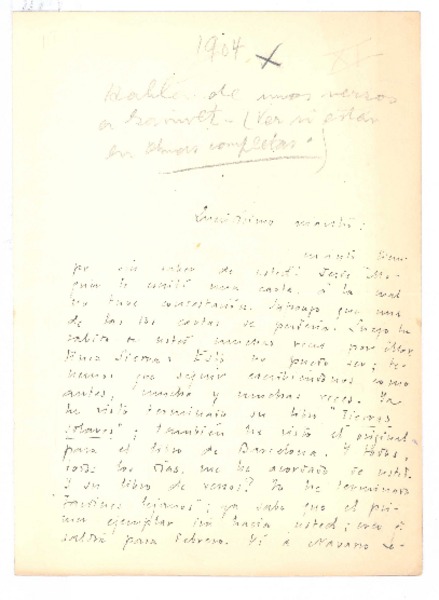 1904. X
Hablé de unos versos
a Ganivet - (Ver si están
en Obras completas.)
Queridísimo maestro:
¡Cuánto tiem-
po sin saber de usted! Desde Mo-
guer le escribí una carta, a la cual
no tuve contestación. Supongo que una
de las dos cartas se perdería. Luego he
sabido de usted muchas veces por Mar-
tínez Sierra. Esto no puede ser; te-
nemos que seguir escribiéndonos como
antes, mucho y muchas veces. Ya
he visto terminado su libro "Tierras
solares"; también he visto el original
para el libro de Barcelona. Y todos,
todos los días, me he acordado de usted.
¿Y su libro de versos? Yo he terminado
"Jardines lejanos"; ya sabe que el pri-
mer ejemplar irá hacia usted; creo
saldrá para Febrero. Di a Navarro Le-